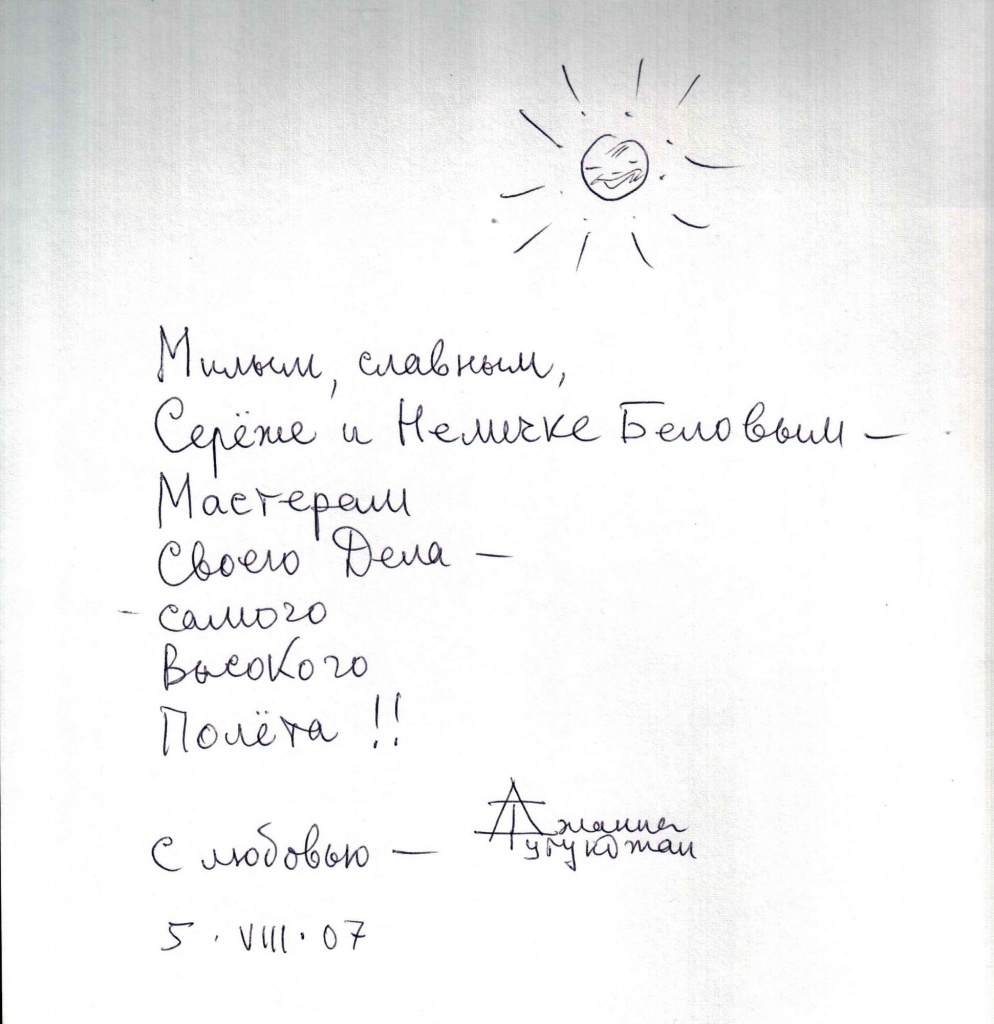 Милым, славным,
Серёже и Немичке Беловым –
Мастерам
Своего Дела –
– самого
Высокого
Полёта !!
С любовью – Джанна
Тутунджан
5 · VIII · 07